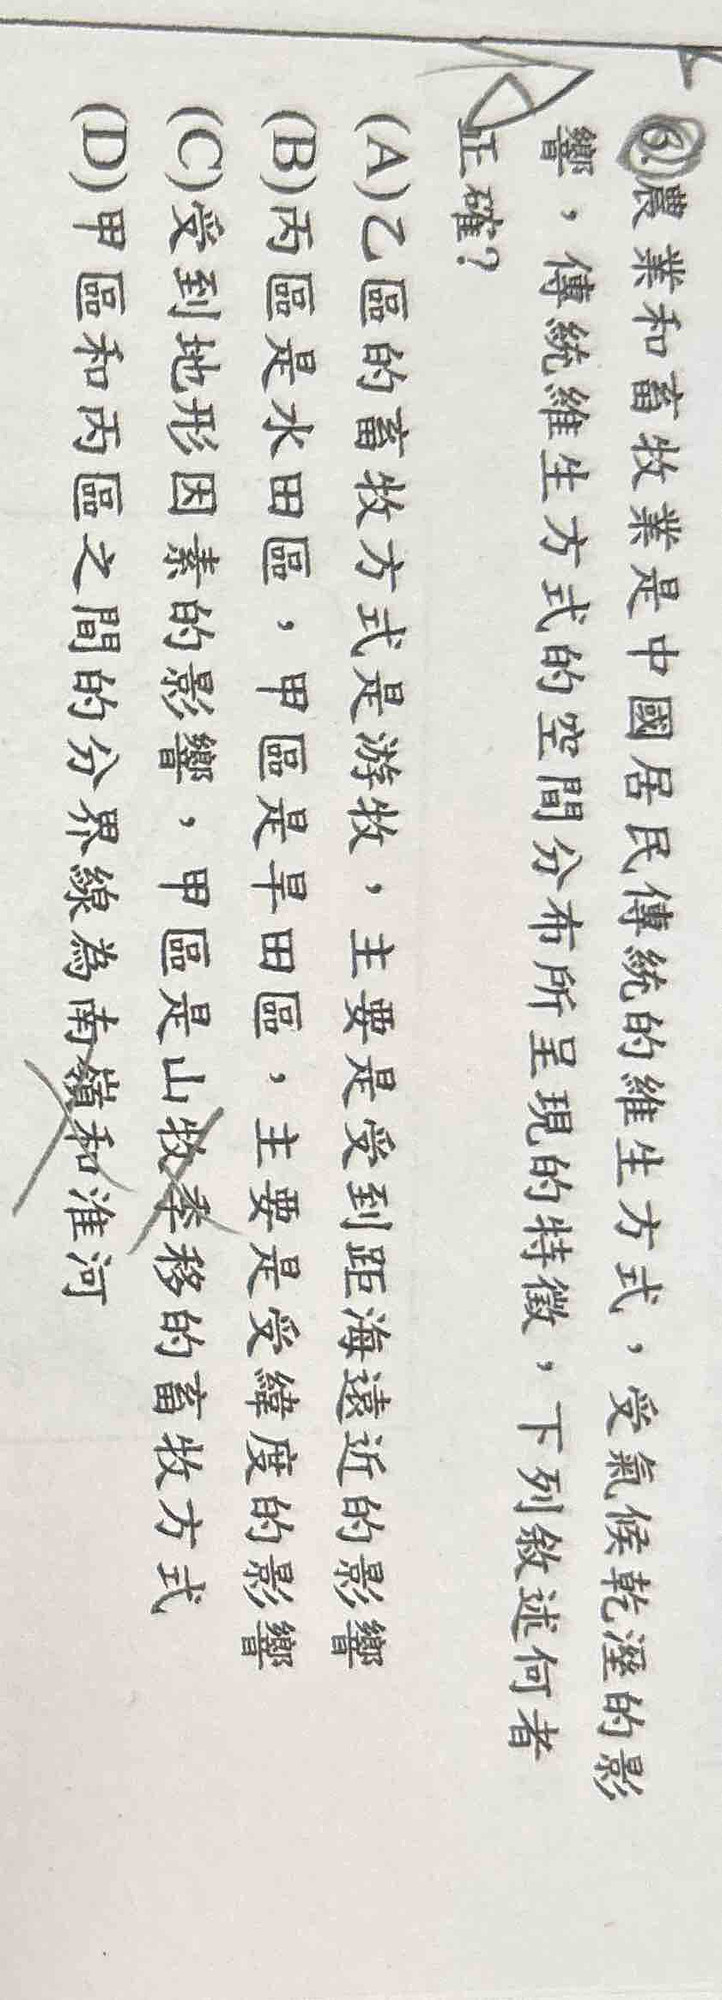 6.農業和畜牧業是中國居民傳統的維生方式，受氣候乾溼的影
響，傳統維生方式的空間分布所呈現的特徵，下列敘述何者
正確？
(A)乙區的畜牧方式是游牧，主要是受到距海遠近的影響
(B)丙區是水田區，甲區是旱田區，主要是受緯度的影響
(C)受到地形因素的影響，甲區是山牧季移的畜牧方式
(D)甲區和丙區之間的分界線為南嶺和淮河